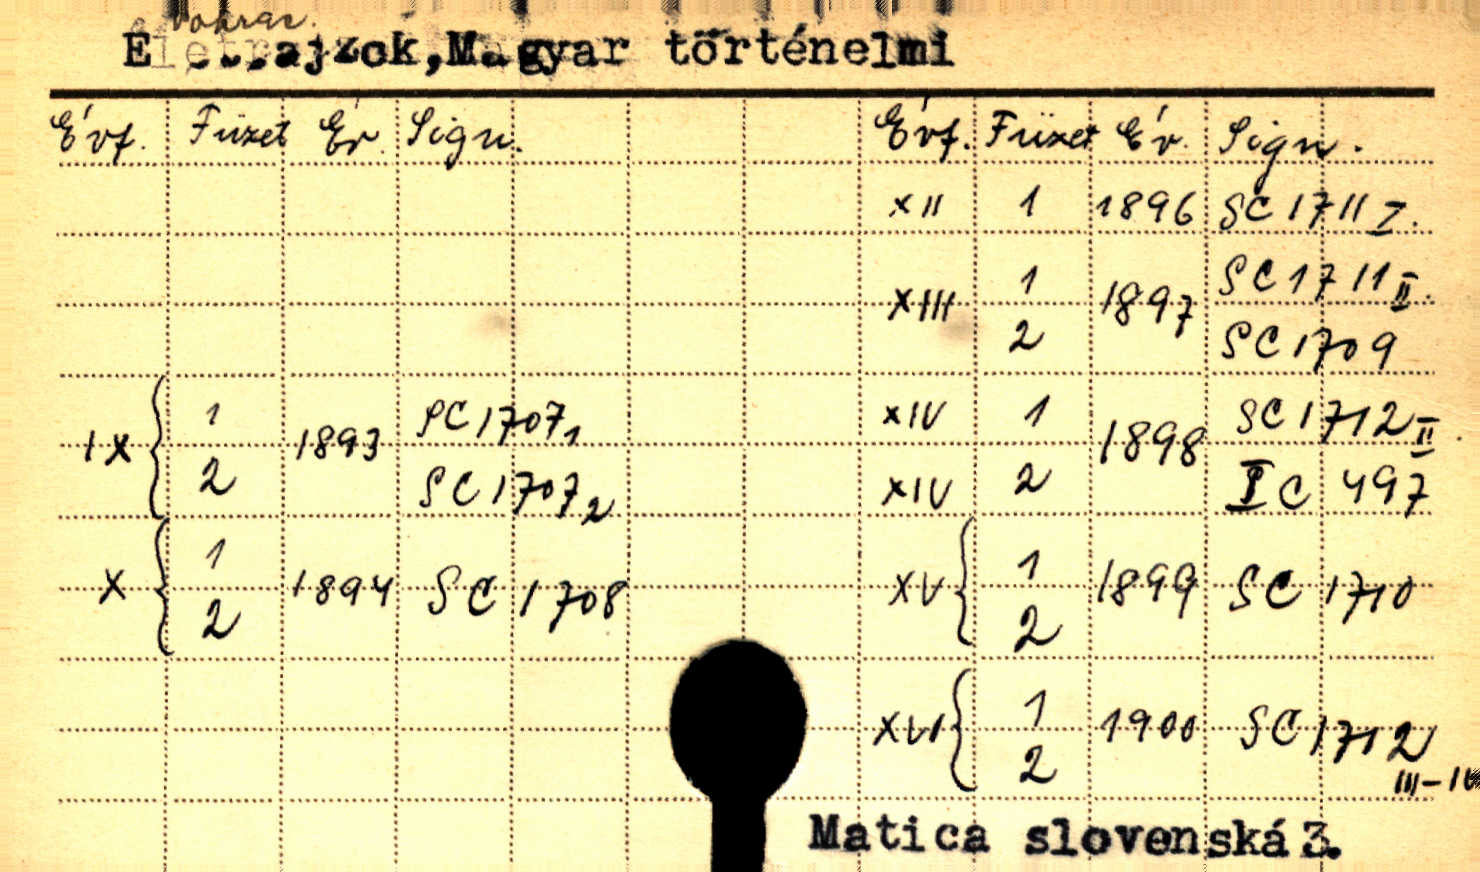 Életrajzok, Magyar történelmi
Évf. Füzet Év. Sign. Évf. Füzet Év. Sign.
XII 1 1896 SC 1711 I.
XIII 1 1897 SC 1711 II.
2 SC 1709
IX 1 1893 SC 1707 1 XIV 1 1898 SC 1712 II
2 SC 1707 2 XIV 2 I C 497
X 1 1894 SC 1708 XV 1 1899 SC 1710
2 2
XVI 1 1900 SC 1712
2 III-IV
Matica slovenská 3.